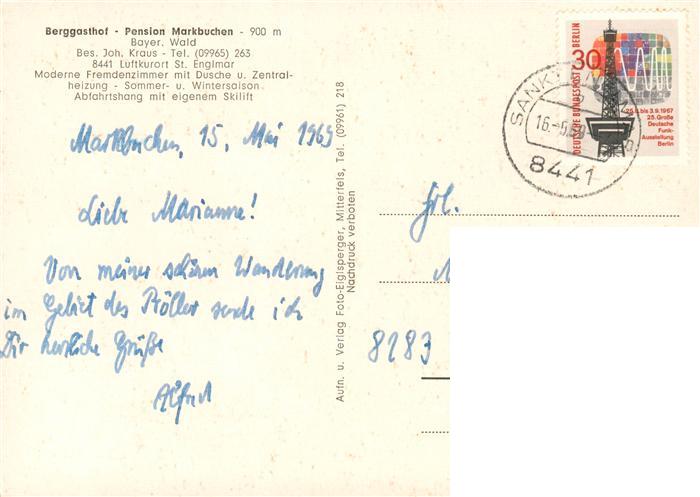 Berggasthof - Pension Markbuchen - 900 m
Bayer. Wald
Bes. Joh. Kraus - Tel. (09965) 263
8441 Luftkurort St. Englmar
Moderne Fremdenzimmer mit Dusche u. Zentral-
heizung - Sommer- u. Wintersaison
Abfahrtshang mit eigenem Skilift
Markbuchen, 15. Mai 1969
Liebe Marianne!
Von meiner schönen Wanderung
im Gebiet des Pröller sende ich
Dir herzliche Grüße
Alfred
Aufn. u. Verlag Foto-Eiglsperger, Mitterfels, Tel. (09961) 218
Nachdruck verboten
30
DEUTSCHE BUNDESPOST BERLIN
25.8. bis 3.9.1967
25. Große
Deutsche
Funk-
Ausstellung
Berlin
SANKT
16.-5.69
8441
Frl.
8283